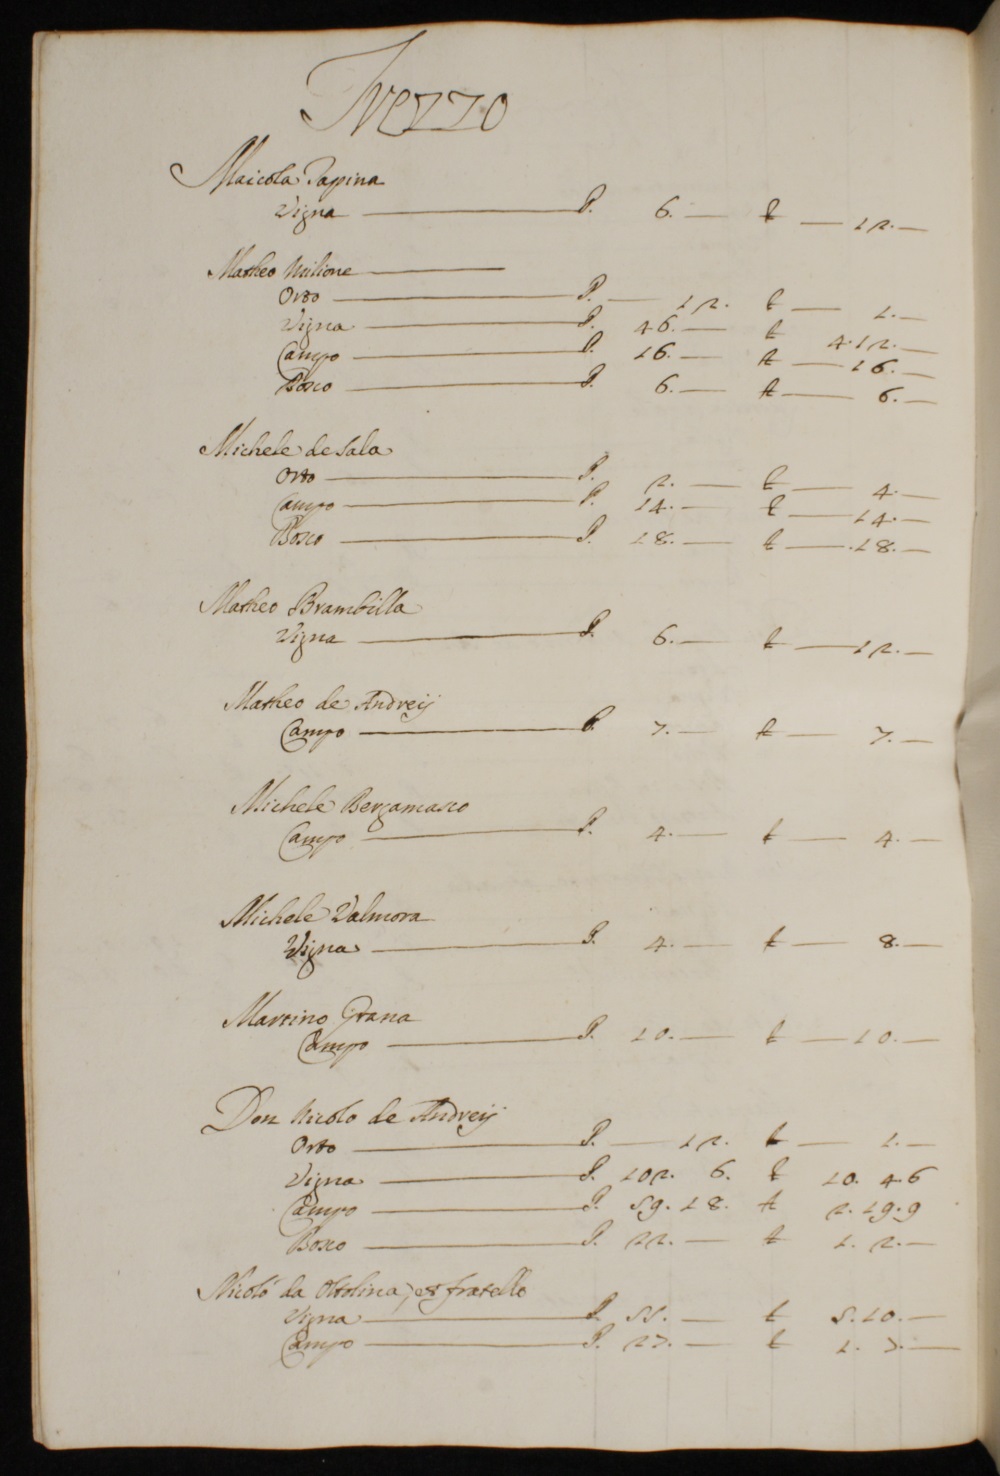 Trezzo
Maicola Tapina
Vigna — P. 6. — £ — 12. —
Matheo Milione —
Orto — P. — 12. £ — 1. —
Vigna — P. 46. — £ 4. 12. —
Campo — P. 16. — £ — 16. —
Bosco — P. 6. — £ — 6. —
Michele de Sala
Orto — P. 2. — £ — 4. —
Campo — P. 14. — £ — 14. —
Bosco — P. 18. — £ — 18. —
Matheo Brambilla
Vigna — P. 6. — £ — 12. —
Matheo de Andreij
Campo — P. 7. — £ — 7. —
Michele Bergamasco
Campo — P. 4. — £ — 4. —
Michele Valmora
Vigna — P. 4. — £ — 8. —
Martino Grana
Campo — P. 10. — £ — 10. —
Don Nicolo de Andreij
Orto — P. — 12. £ — 1. —
Vigna — P. 102. 6. £ 10. 4. 6
Campo — P. 59. 18. £ 2. 19. 9
Bosco — P. 22. — £ 1. 2. —
Nicolò da Ottolina, et fratello
Vigna — P. 55. — £ 5. 10. —
Campo — P. 27. — £ 1. 7. —